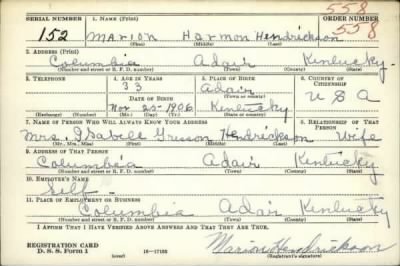 558
SERIAL NUMBER 1. NAME (Print) ORDER NUMBER
152 Marion Harmon Hendrickson 558
(First) (Middle) (Last)
2. ADDRESS (Print)
Columbia Adair Kentucky.
(Number and street or R. F. D. number) (Town) (County) (State)
3. TELEPHONE 4. AGE IN YEARS 5. PLACE OF BIRTH 6. COUNTRY OF CITIZENSHIP
33 Adair
DATE OF BIRTH (Town or county) U S A
Nov 25-1906 Kentucky
(Exchange) (Number) (Mo.) (Day) (Yr.) (State or country)
7. NAME OF PERSON WHO WILL ALWAYS KNOW YOUR ADDRESS 8. RELATIONSHIP OF THAT PERSON
Mrs. Isabell Hendrickson Wife
(Mr., Mrs., Miss) (First) (Middle) (Last)
9. ADDRESS OF THAT PERSON
Columbia Adair Kentucky
(Number and street or R. F. D. number) (Town) (County) (State)
10. EMPLOYER'S NAME
Self-
11. PLACE OF EMPLOYMENT OR BUSINESS
Columbia Adair Kentucky
(Number and street or R. F. D. number) (Town) (County) (State)
I AFFIRM THAT I HAVE VERIFIED ABOVE ANSWERS AND THAT THEY ARE TRUE.
REGISTRATION CARD
D. S. S. Form 1 (over) 16-17105 Marion Hendrickson
(Registrant's signature)